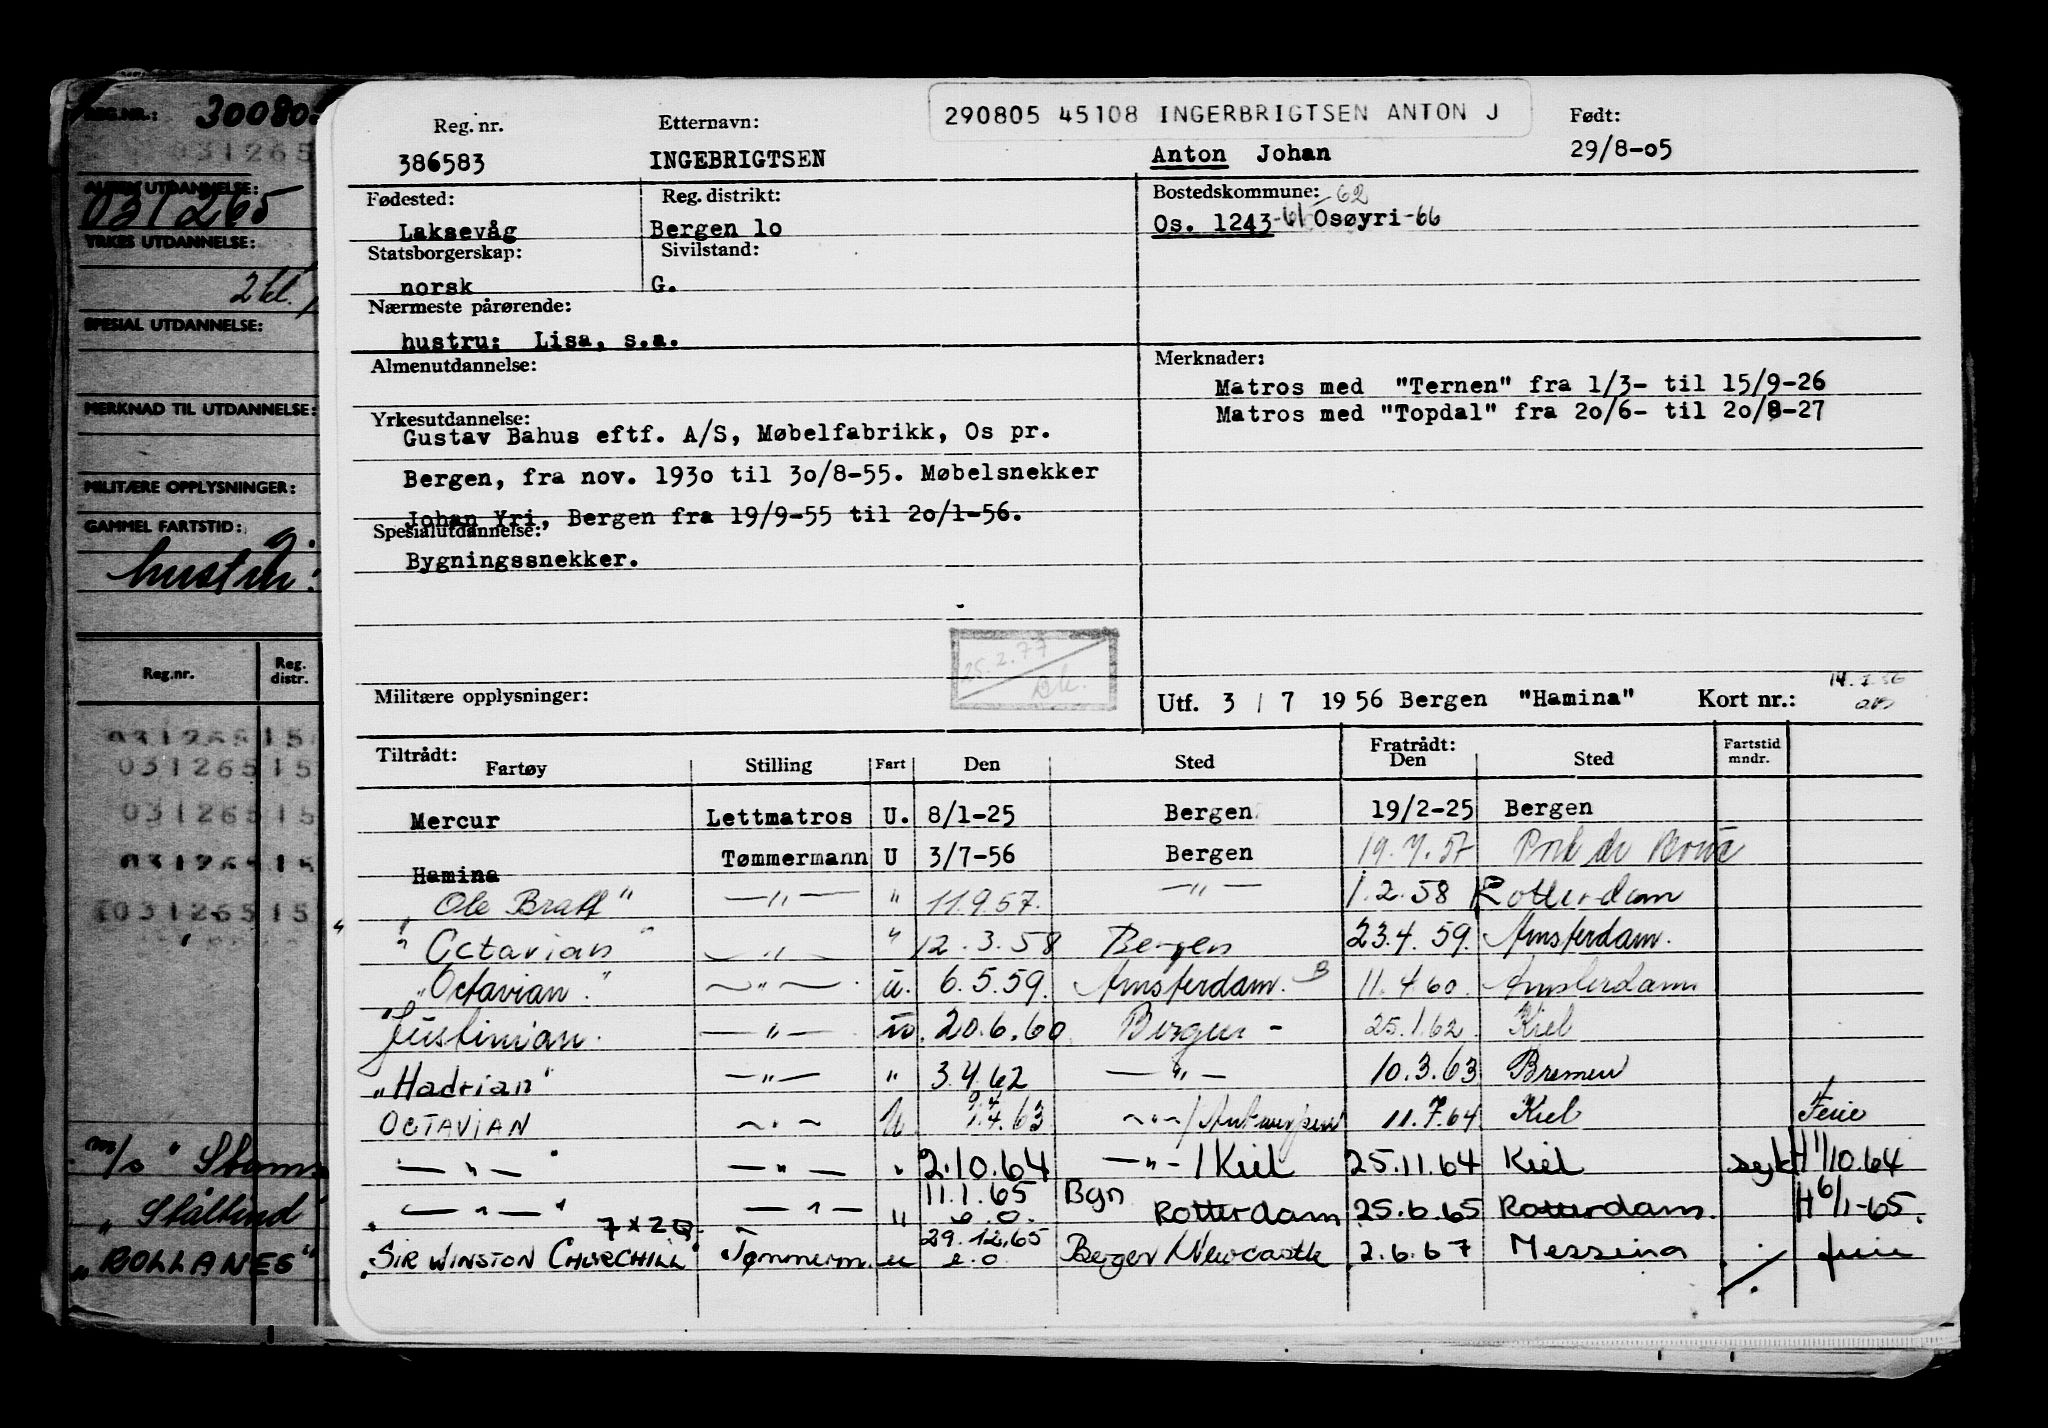 REG.NR.: 300805
031265
ALMEN UTDANNELSE:
031265
YRKES UTDANNELSE:
2 kl.
SPESIAL UTDANNELSE:
MERKNAD TIL UTDANNELSE:
MILITÆRE OPPLYSNINGER:
GAMMEL FARTSTID:
g.
hustru:
Reg.nr. Reg. distr.
031265 15
031265 15
031265 15
031265 15
031265 15
m/s "
" Stålbind"
"ROLLANES"
290805 45108 INGERBRIGTSEN ANTON J
Reg. nr. Etternavn: Født:
386583 INGEBRIGTSEN Anton Johan 29/8-05
Fødested: Reg. distrikt: Bostedskommune: -62
Laksevåg Bergen 10 Os. 1243-61 Osøyri-66
Statsborgerskap: Sivilstand:
norsk G.
Nærmeste pårørende:
hustru: Lisa, s.a.
Almenutdannelse: Merknader:
Matros med "Ternen" fra 1/3- til 15/9-26
Matros med "Topdal" fra 20/6- til 20/8-27
Yrkesutdannelse:
Gustav Bahus eftf. A/S, Møbelfabrikk, Os pr.
Bergen, fra nov. 1930 til 30/8-55. Møbelsnekker
Johan Yri, Bergen fra 19/9-55 til 20/1-56.
Spesialutdannelse:
Bygningssnekker.
25.2.77
Militære opplysninger: Utf. 3 / 7 1956 Bergen "Hamina" Kort nr.:
Tiltrådt: Fartøy Stilling Fart Den Sted Fratrådt: Den Sted Fartstid mndr.
Mercur Lettmatros U. 8/1-25 Bergen 19/2-25 Bergen
Hamina Tømmermann U 3/7-56 Bergen 19.7.57 Port de Bouc
" Ole Bratt" — " — " 11.9.57. — " — 1.2.58 Rotterdam
" Octavian " — " — " 12.3.58 Bergen 23.4.59. Amsterdam.
"Octavian." — " — u. 6.5.59. Amsterdam. 11.4.60. Amsterdam
"Justinian. — " — u. 20.6.60 Bergen - 25.1.62. Kiel
"Hadrian" — " — " 3.4.62 — " — 10.3.63 Bremen
OCTAVIAN — " — U. 9.4 1.4.63 — " — / Antwerpen 11.7.64 Kiel Ferie
— " — — " — " 2.10.64 — " — / Kiel 25.11.64 Kiel sykt H 1/10.64
" — " — " — " — " 11.1.65 e.o. Bgn Rotterdam 25.6.65 Rotterdam. H 6/1-65.
7 x 2Q
"SIR WINSTON CHURCHILL" Tømmerm. u 29.12.65 e.o. Bergen / Newcastle 2.6.67 Messina ferie